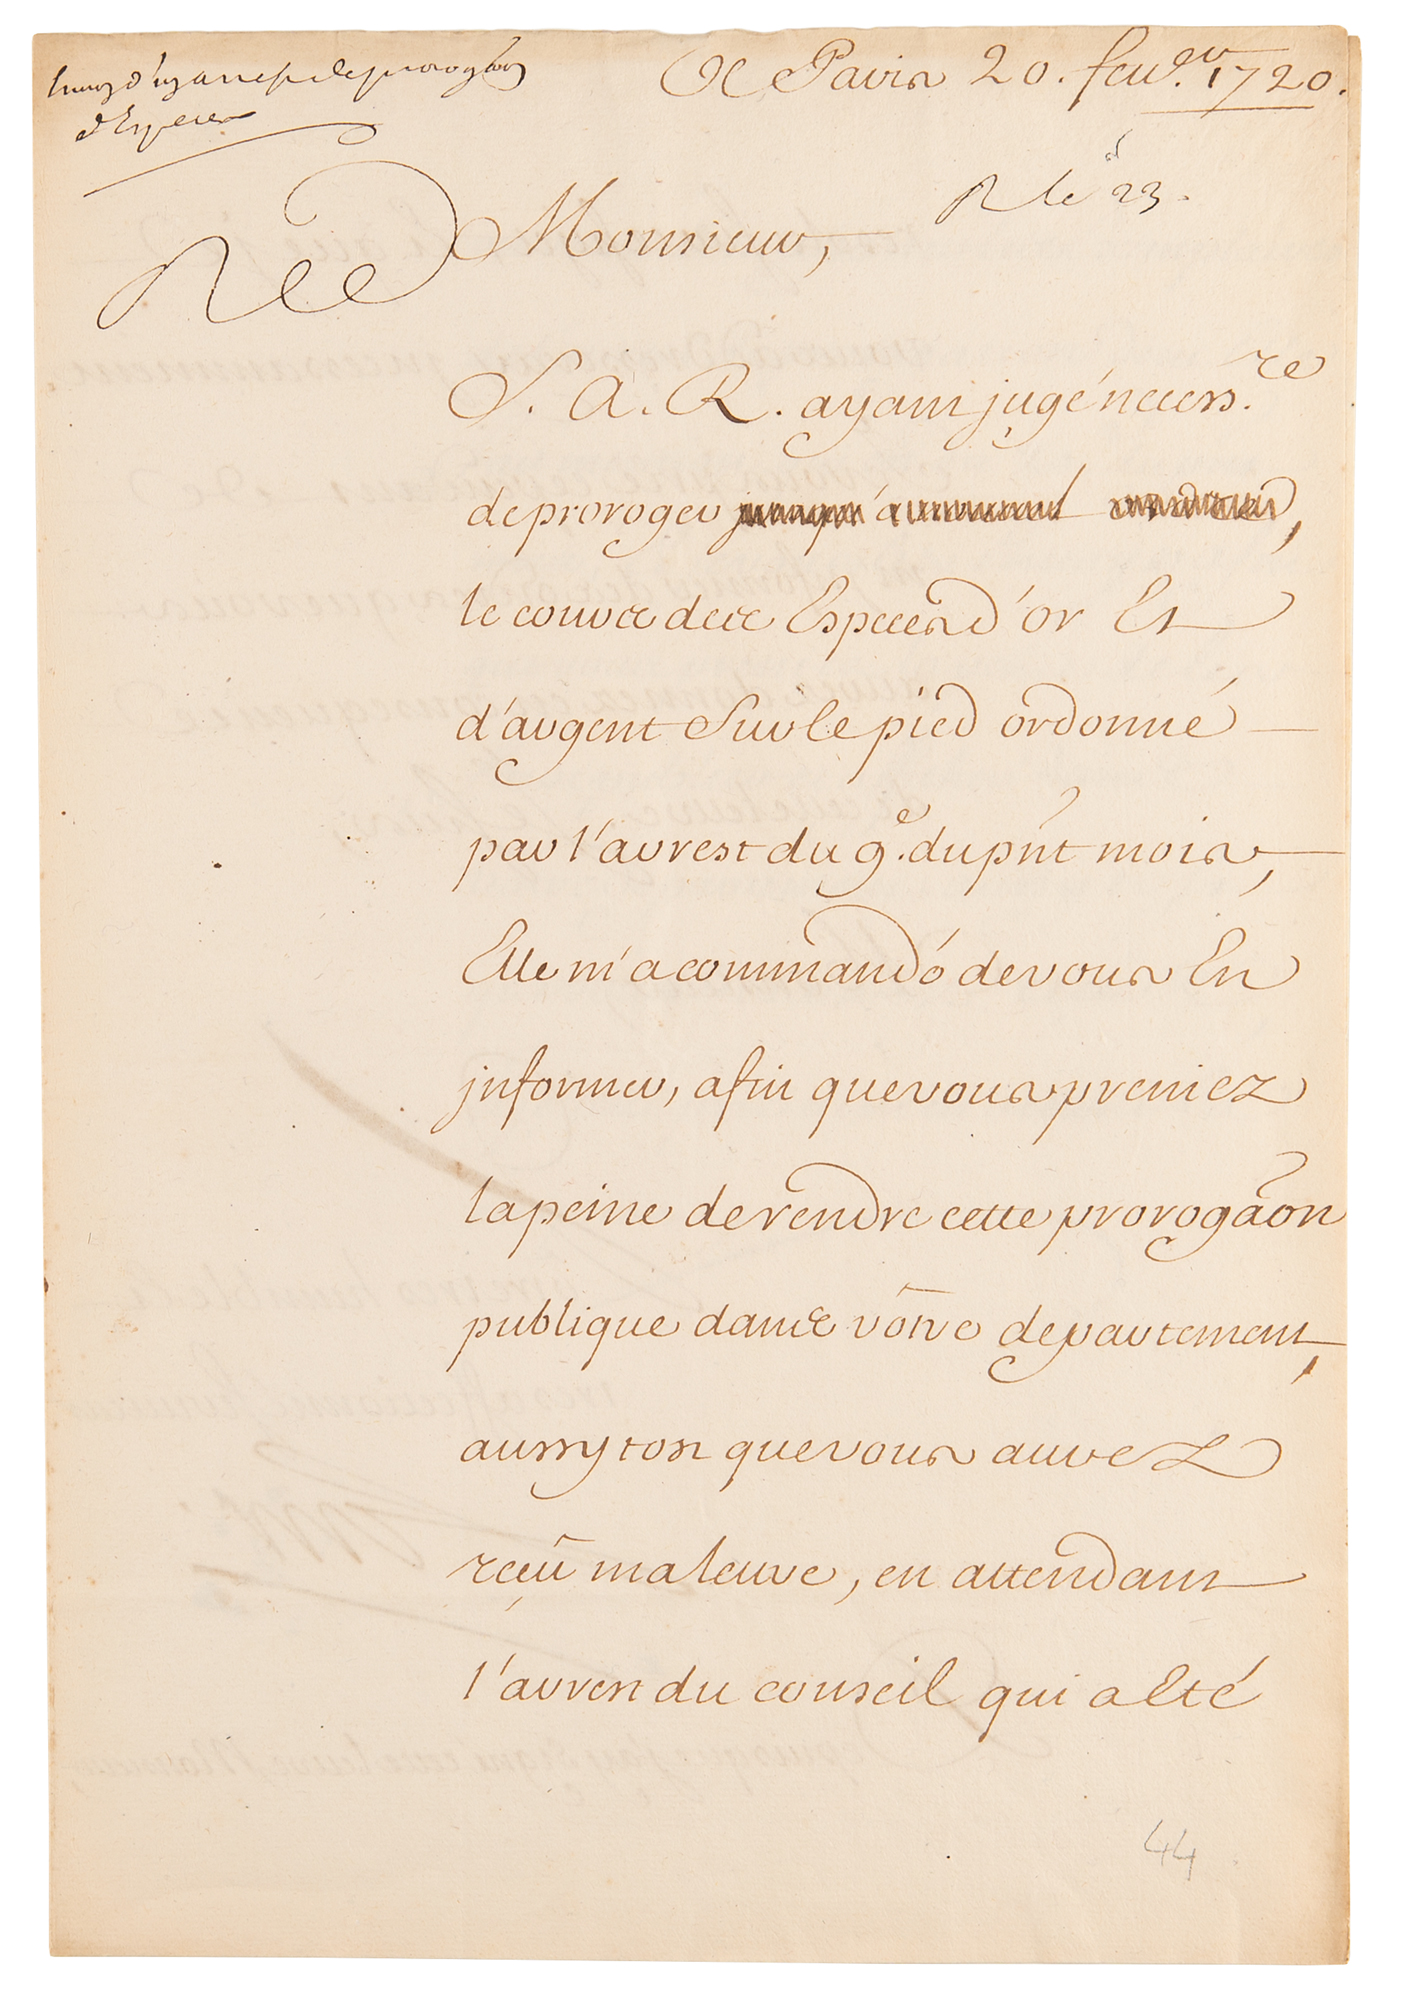 Envoy d'un arrest de prorogâon
d'Especes
A Paris 20. feu.er 1720.
R le 23.
Monsieur,
S. A. R. ayant jugé necess.re
de proroger jusqu'a
le cours des Especes d'or Et
d'argent Sur le pied ordonné
par l'arrest du 9.e du pnt mois,
Elle m'a commandé de vous En
jnformer, afin que vous preniez
la peine de rendre cette prorogâon
publique dans vôtre departement,
aussy tost que vous aurez
receu ma lettre, en attendant
l'arrest du conseil qui a Eté
44